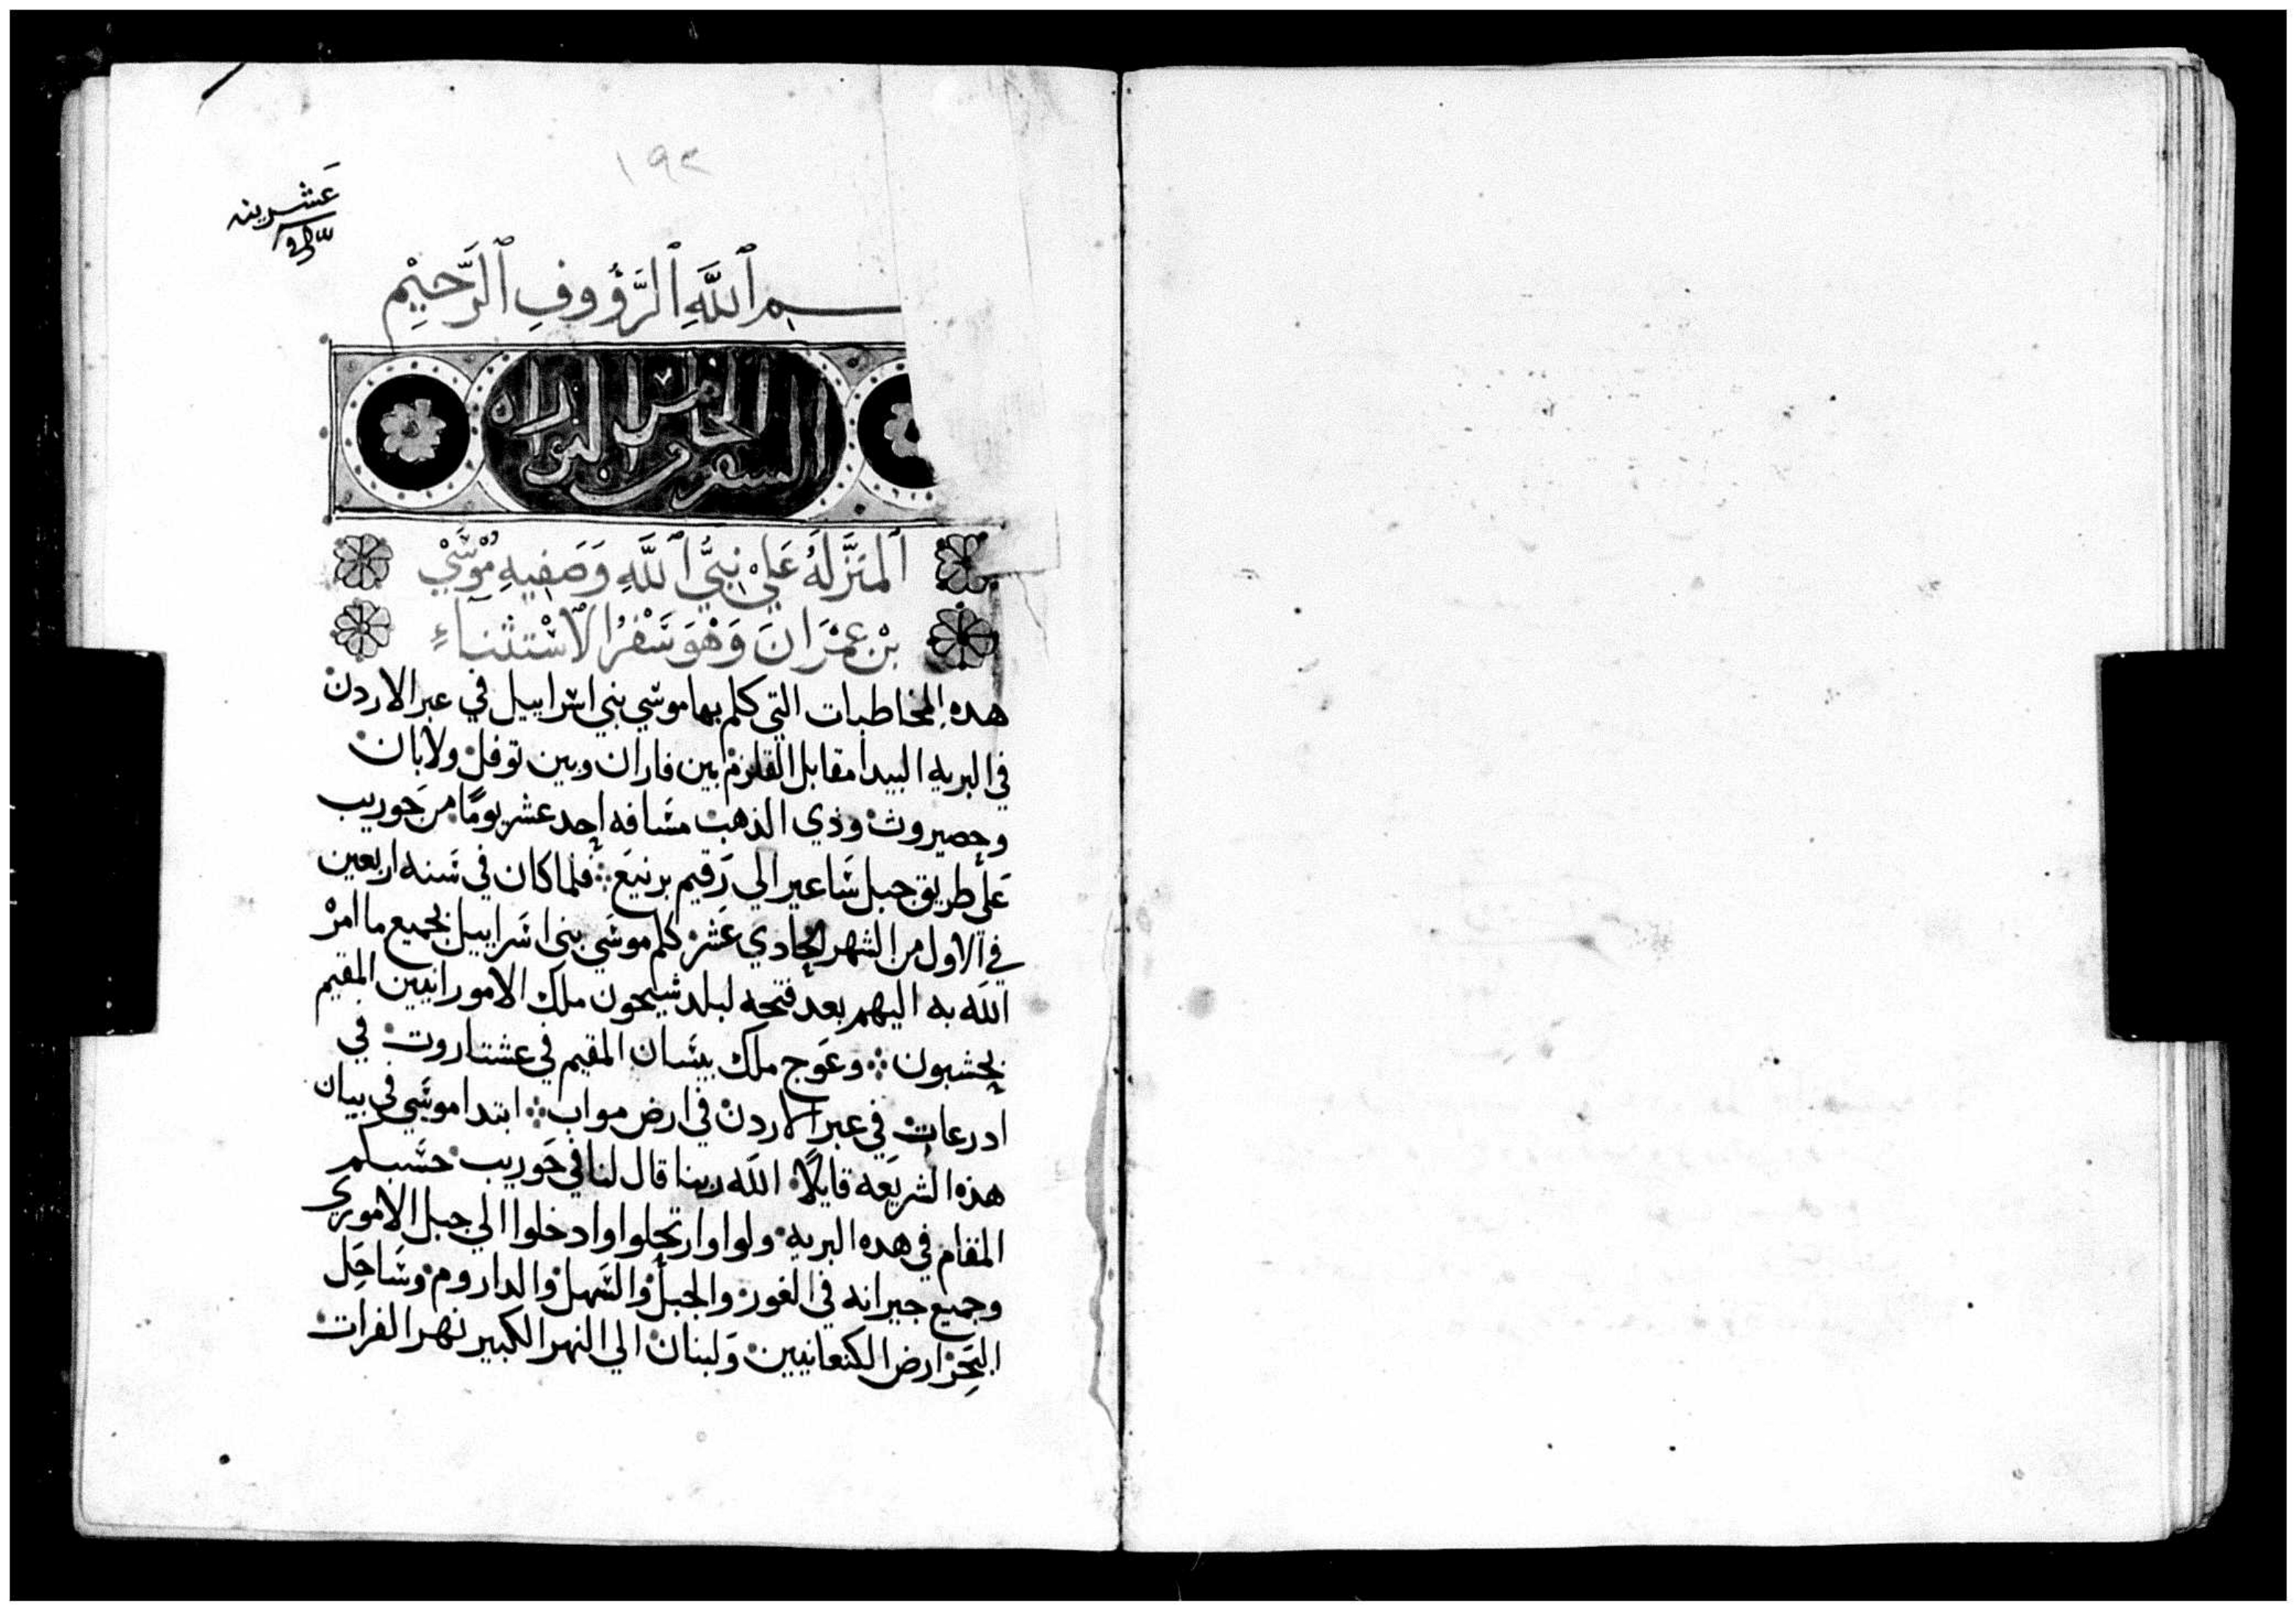 ١٩٢
عشرين
بسم ٱللَّهِ ٱلرَّؤُوفِ ٱلرَّحِيْمِ
السفر الخامس من التوراه
ٱلمنَزَّلَهُ عَليْ نبيُّ ٱللَّهِ وَصَفِيهِ مُوْسَيْ
بْن عِمْرَانَ وَهْوَ سَفْرُ الاسْتثنَاءِ
هده المخاطبات التي كلم بها موسي بني اسراييل في عبر الاردن
في البريه البيدا مقابل القلزم بين فاران وبين توفل ولابان
وحصيروث وذي الذهب مسَافه إحد عشر يومًا من حَوريب
عَلي طريق جبل سَاعير الي رَقيم برنيَع فلما كان في سَنه اربعين
في الاول من الشهر الحادي عَشر كلم موسَي بني اسَراييل بجميع ما امرْ
اللَه به اليهم بعد فتحه لبلد سيحون ملك الامورانيين المقيم
بحشبون وعَوج ملك بيسَان المقيم في عشتاروت في
ادرعات في عبر الاردن في ارض مواب ابتدا موسَي في بيان
هذه الشريعَه قايلًا اللَه ربنا قال لنا في حَوريب حسَبكم
المقام في هده البريه ولوا وارتحلوا وادخلوا الي جبل الاموري
وجميع جيرانه في الغور والجبل والسَهل والداروم وسَاحِل
البَحِر ارض الكنعانيين وَلبنان الي النهر الكبير نهر الفرات